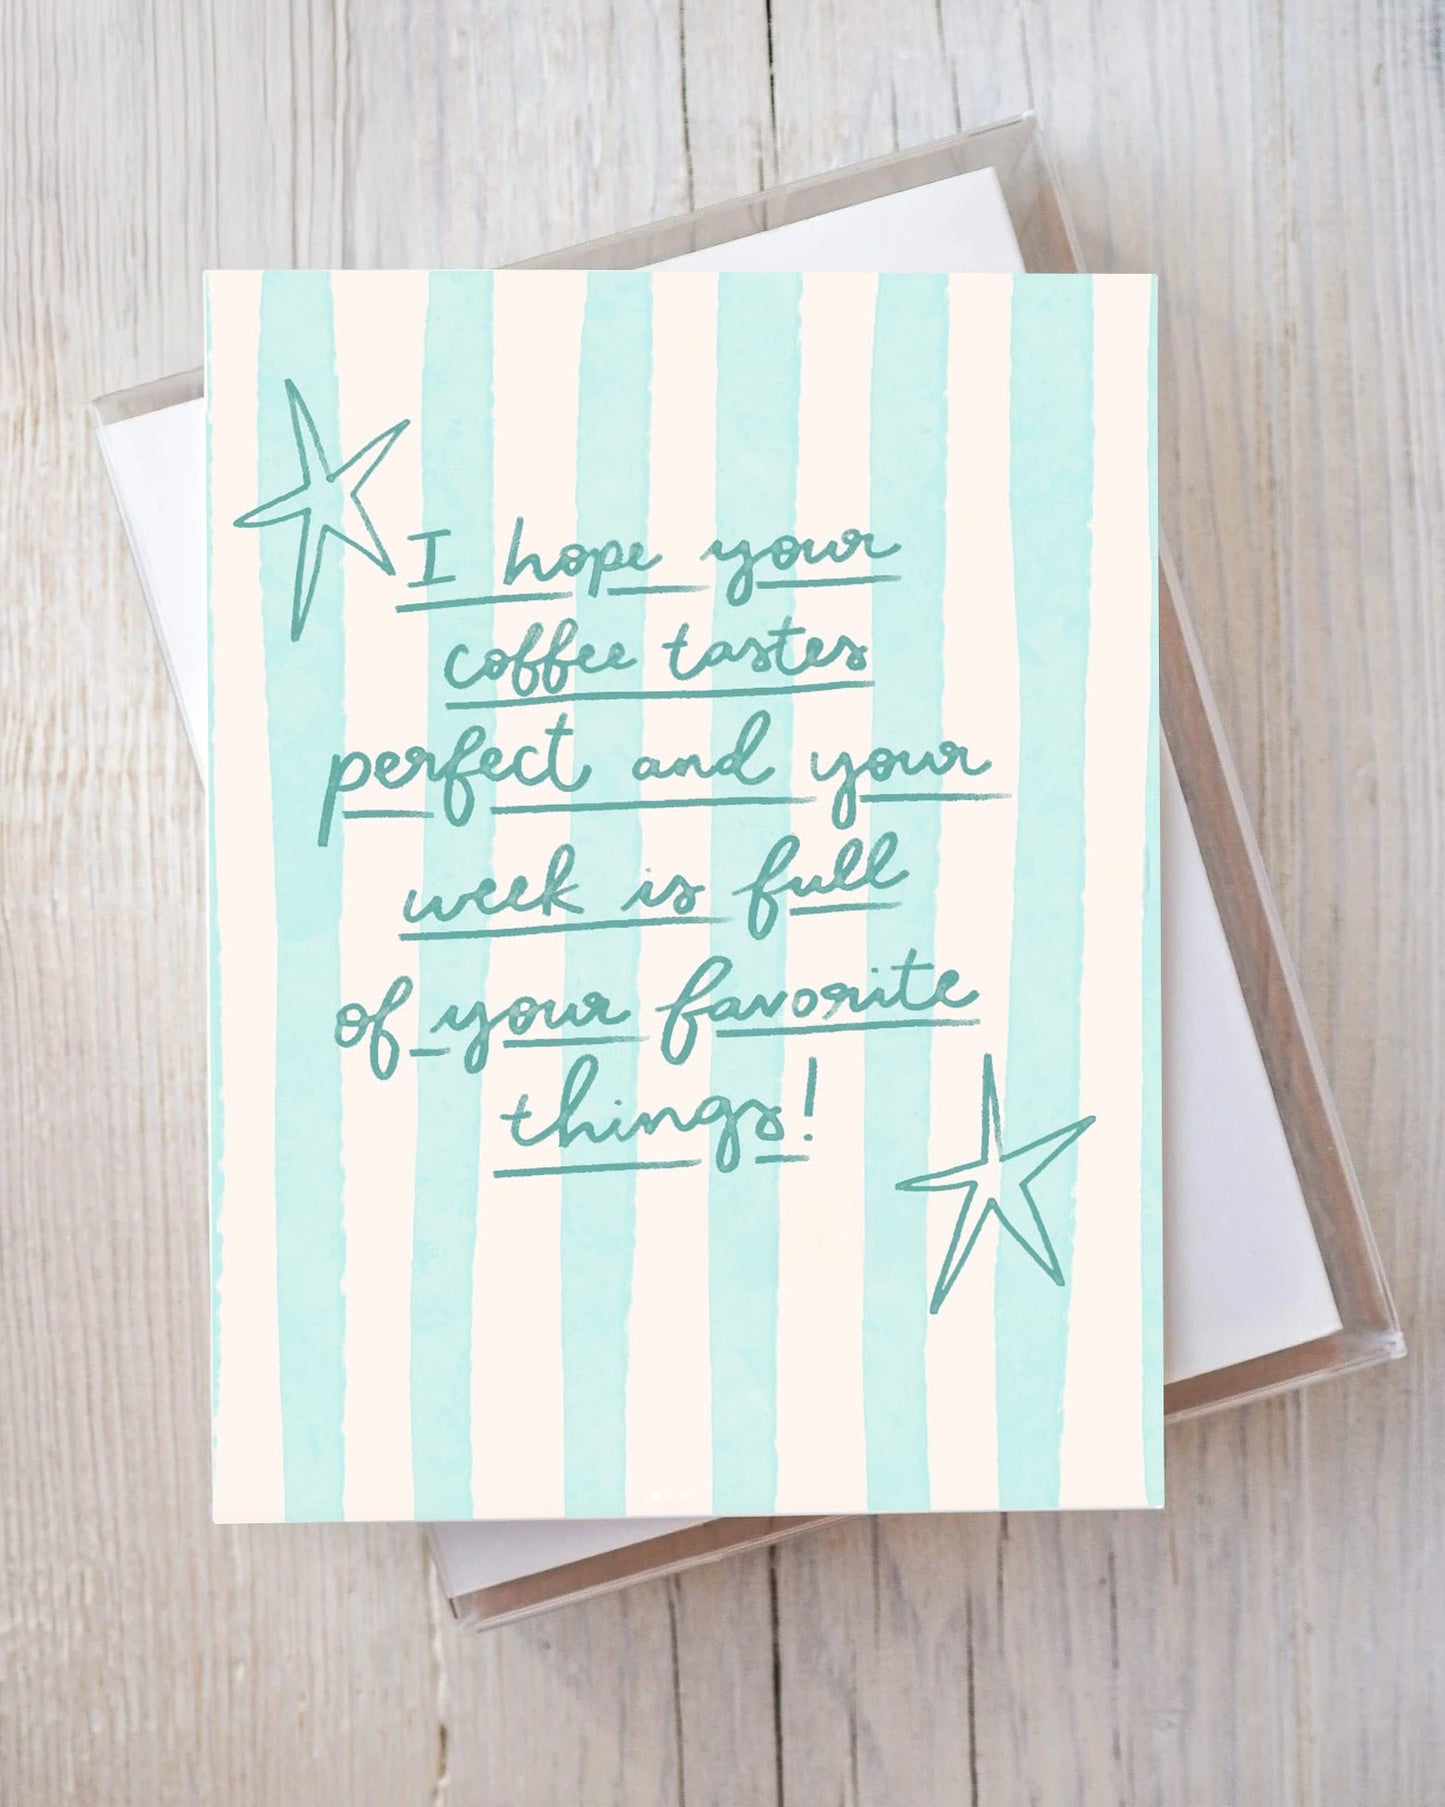 I hope your
coffee tastes
perfect and your
week is full
of your favorite
things!